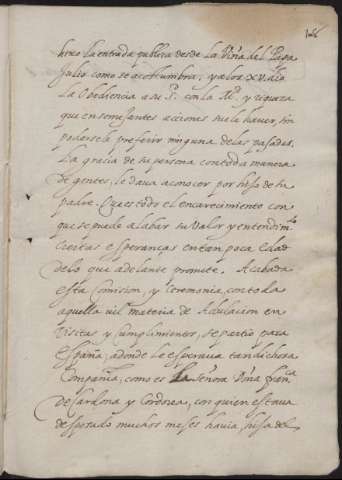 hizo la entrada publica desde la Viña del Papa
Julio como se acostumbra, y a los XV. dio
la Obediencia a su S.d con la A.d y riqueza
que en semejantes acciones suele haver, sin
poderse le preferir ninguna de las pasadas.
La gracia de su persona con toda manera
de gentes, le dava a conocer por hijo de su
padre. Que es todo el encarecimiento con
que se puede alabar su valor y entendim.to
Ciertas esperanças en tan poca edad
de lo que adelante promete. Acabada
esta Comision, y Ceremonia, con toda
aquella vil materia de Adulacion en
Visitas y Cumplimientos, se partio para
España, adonde le esperava tan dichosa
Compañia, como es la Señora Doña Fran.ca
de Cardona y Cordova, con quien estava
desposado muchos meses havia, hija del